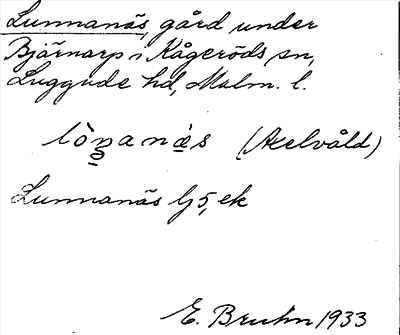 Lunnanäs, gård under
Bjärnarp i Kågeröds sn,
Luggude hd, Malm. l.
lò̱na næ̀s (Axelvåld)
Lunnanäs Gj 5, ek
E. Bruhn 1933